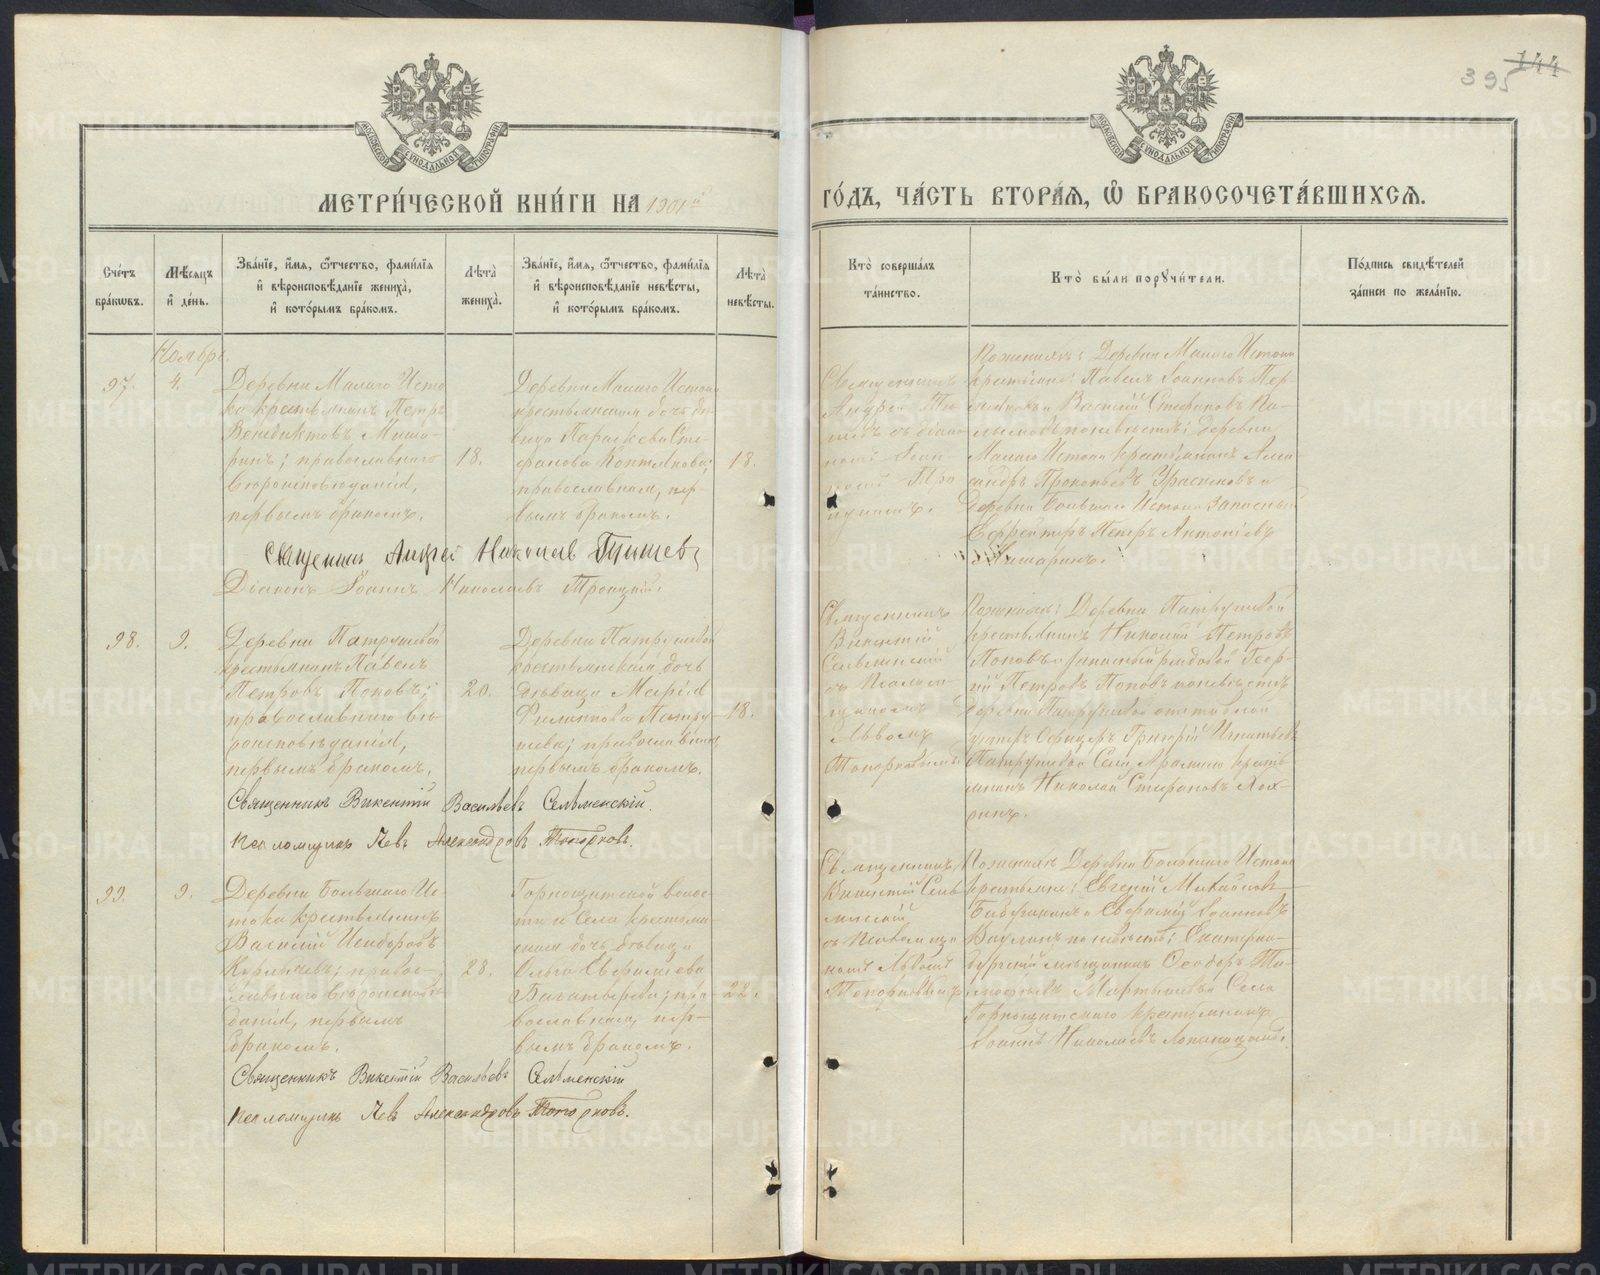 144
395
МЕТРИ́ЧЕСКОЙ КНИ́ГИ НА 1901й
ГО́ДЪ, ЧА́СТЬ ВТОРА́Я, Ѿ БРАКОСОЧЕТА́ВШИХСЯ.
Сче́тъ бра́кωвъ.
Мѣ́сяцъ и҆ де́нь.
Зва́нїе, и҆́мя, ѻ҆́тчество, фами́лїя
и҆ вѣроисповѣ́данїе жениха̀,
и҆ кото́рымъ бра́комъ.
Лѣта̀ жениха̀.
Зва́нїе, и҆́мя, ѻ҆́тчество, фами́лїя
и҆ вѣроисповѣ́данїе невѣ́сты,
и҆ кото́рымъ бра́комъ.
Лѣта̀ невѣ́сты.
Кто̀ соверша́лъ та́инство.
Кто̀ бы́ли порꙋчи́тели.
По́дпись свидѣ́телей за́писи по жела́нїю.
Ноябрь
97.
4.
Деревни Малаго Исто
ка крестьянинъ Петръ
Венедиктовъ
православнаго
вѣроисповѣданія,
первымъ бракомъ.
18.
Деревни Малаго Истока
крестьянская дочь дѣ-
вица Параскева Сте-
фанова Коптякова;
православная, пер-
вымъ бракомъ.
18.
Священникъ
Андрей
съ діако
номъ Іоан-
номъ Тро
ицкимъ.
По женихѣ: Деревни Малаго Истока
крестьяне: Павелъ Іоанновъ
и Василій Стефановъ
по невѣстѣ: деревни
Малаго Истока крестьянинъ Алек
сандръ Прокопьевъ и
деревни Большаго Истока запасный
Ефрейторъ Петръ Антоніевъ
Священникъ Андрей Николаевъ
Діаконъ Іоаннъ Николаевъ Троицкій.
98.
9.
Деревни Патрушевой
крестьянинъ Павелъ
Петровъ Поповъ;
православнаго вѣ-
роисповѣданія,
первымъ бракомъ.
20.
Деревни Патрушевой
крестьянская дочь
дѣвица Марія
Филиппова Патру
шева; православная,
первымъ бракомъ.
18.
Священникъ
Викентій
Сельменскій
съ Псалом
щикомъ
Львомъ
Топорковымъ
По женихѣ: Деревни Патрушевой
крестьянинъ Николай Петровъ
Поповъ и запасный рядовой Геор-
гій Петровъ Поповъ по невѣстѣ
деревни Патрушевой отставной
унтеръ Офицеръ Григорій Игнатьевъ
Патрушевъ и Села Арамиль кресть
янинъ Николай Стефановъ
Священникъ Викентій Васильевъ Сельменскій.
Псаломщикъ Левъ Александровъ Топорковъ.
99.
9.
Деревни Большаго Ис-
тока крестьянинъ
Василій Исидоровъ
правос-
лавнаго вѣроисповѣ
данія, первымъ
бракомъ.
28.
Горнощитской волос-
ти и Села крестьян-
ская дочь дѣвица
Ольга
Багатырева; пра
вославная, пер-
вымъ бракомъ.
22.
Священникъ
Викентій Сель
менскій
съ Псаломщи
комъ Львомъ
Топорковымъ
По женихѣ Деревни Большаго Истока
крестьяне: Евгеній Михайловъ
и Іоанновъ
по невѣстѣ: Екатерин-
бургскій мѣщанинъ Ѳеодоръ Ти-
моѳеевъ Мартыновъ и Села
Горнощитскаго крестьянинъ
Іоаннъ Николаевъ
Священникъ Викентій Васильевъ Сельменскій
Псаломщикъ Левъ Александровъ Топорковъ.
METRIKI.GASO-URAL.RU